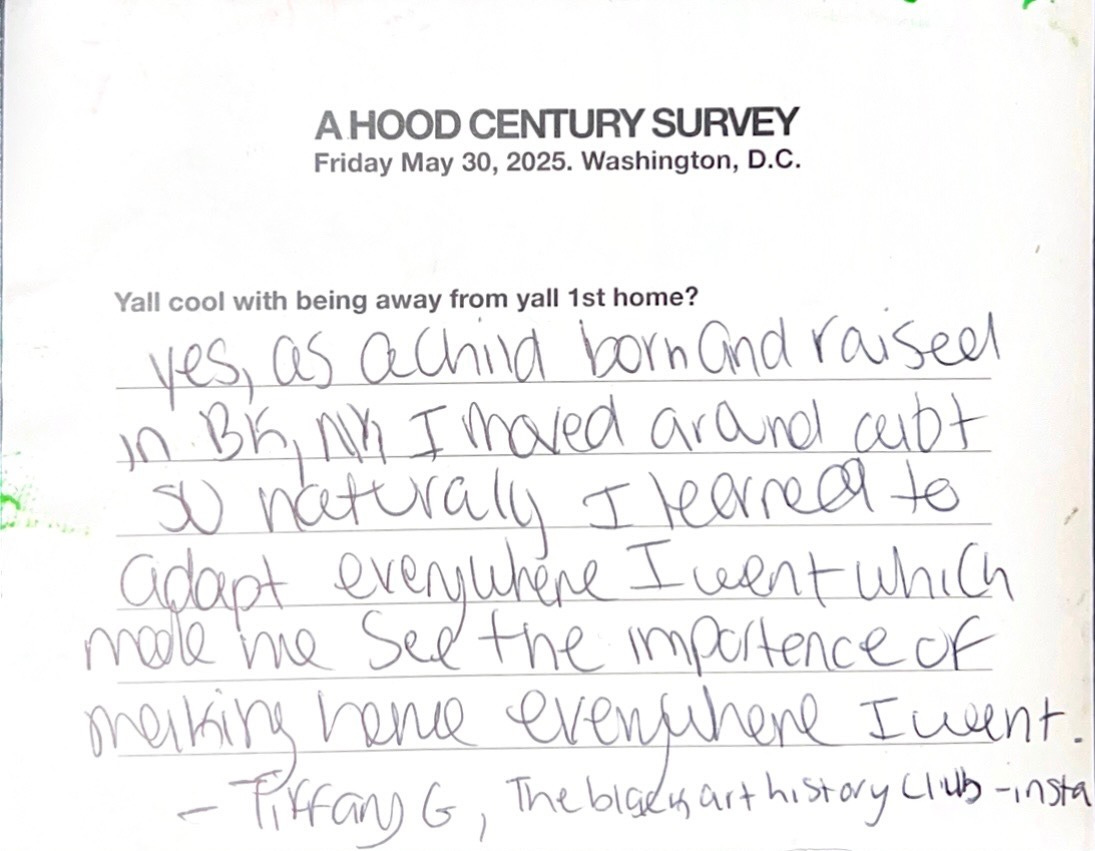 A HOOD CENTURY SURVEY
Friday May 30, 2025. Washington, D.C.
Yall cool with being away from yall 1st home?
yes, as a child born and raised
in BK, NY I moved around
so naturaly I learned to
adapt everywhere I went which
made me see the importence of
making home everywhere I went.
- Tiffany G, The black art history Club - insta